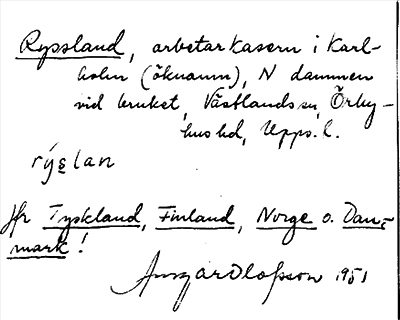 Ryssland, arbetarkasern i Karl-
holm (öknamn), N dammen
vid bruket, Västlands sn, Örby-
hus hd, Upps. l.
rýs̱lan
Jfr Tyskland, Finland, Norge o. Dan-
mark!
Ansgar Olofsson 1951